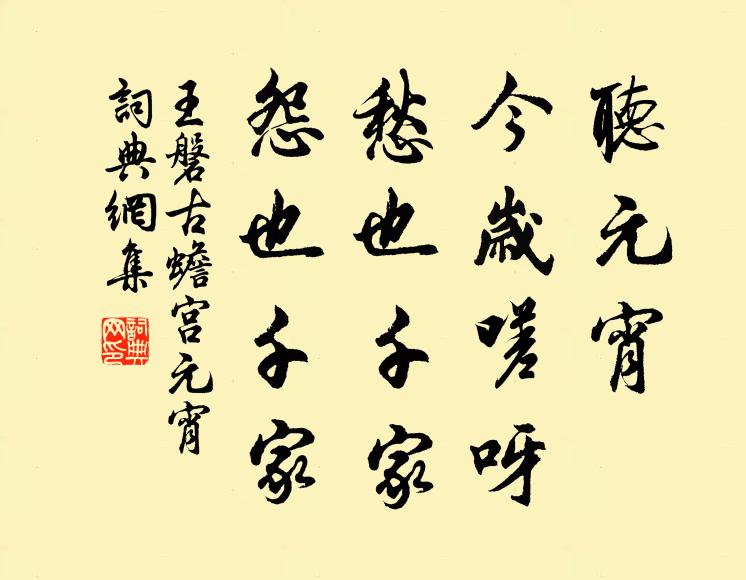 聽元宵
今歲嗟呀
愁也千家
怨也千家
王磐古蟾宮元宵
詞典網集
詞典
网印